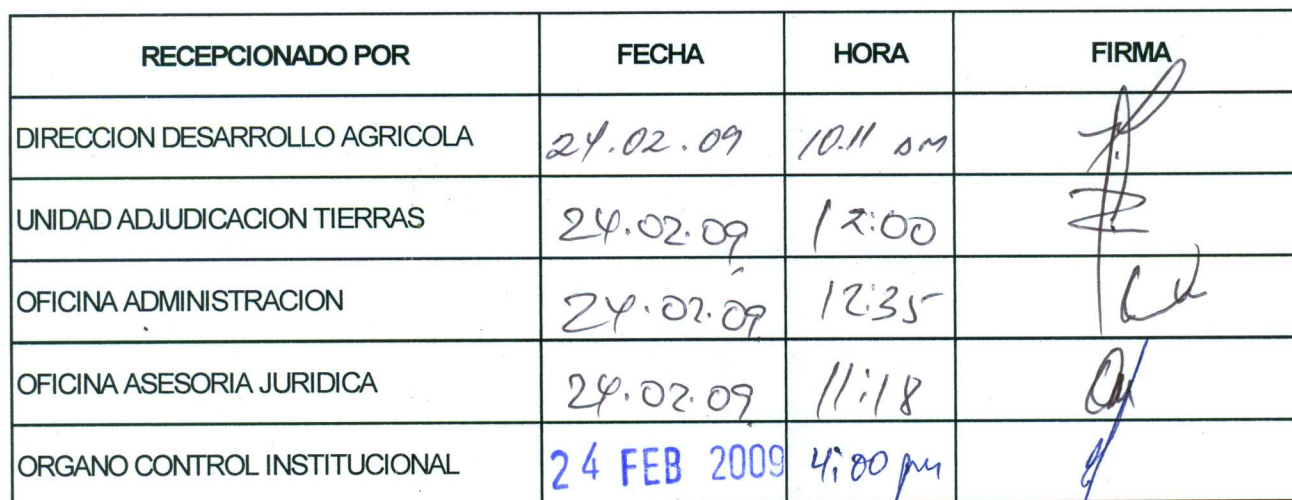 RECEPCIONADO POR FECHA HORA FIRMA
DIRECCION DESARROLLO AGRICOLA 24.02.09 10.11 am
UNIDAD ADJUDICACION TIERRAS 24.02.09 12:00
OFICINA ADMINISTRACION 24.02.09 12:35
OFICINA ASESORIA JURIDICA 24.02.09 11:18
ORGANO CONTROL INSTITUCIONAL 24 FEB 2009 4:00 pm